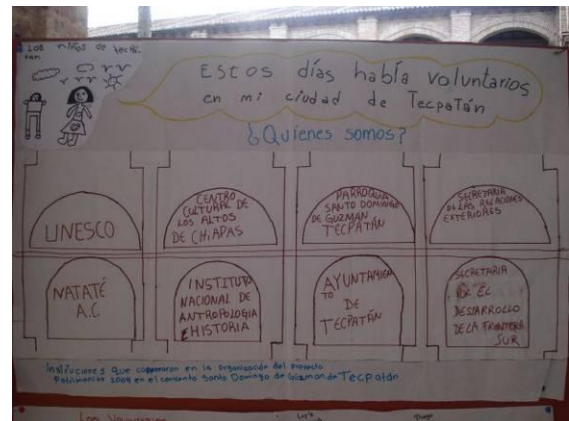 Los niños de tecpa
tan
Estos días había voluntarios
en mi ciudad de Tecpatán
¿Quienes somos?
UNESCO
CENTRO
CULTURAL DE
LOS ALTOS
DE CHIAPAS
PARROQUIA
SANTO DOMINGO
DE GUZMAN
TECPATÁN
SECRETARIA
DE LAS RELACIONES
EXTERIORES
NATATÉ
A.C
INSTITUTO
NACIONAL DE
ANTROPOLOGIA
E HISTORIA
AYUNTAMIEN
TO
DE
TECPATÁN
SECRETARIA
EL
DESARROLLO
DE LA FRONTERA
SUR
Instituciones que cooperaron en la organización del proyecto
Patrimonios 2009 en el convento Santo Domingo de Guzman de Tecpatán
Los Voluntarios